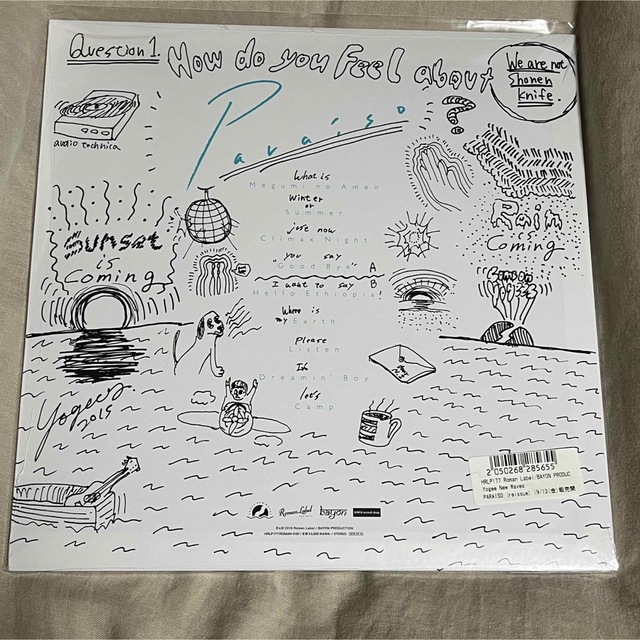 Question 1.
How do you Feel about
Paraiso
?
We are not
Shonen
Knife.
audio technica
What is
Megumi no Amen
Winter
or
Summer
just now
Climax Night
"you say
Good Bye" A
I want to say B
Hello Ethiopia!
Where is
my Earth
Please
Listen
I'm
Dreamin' Boy
let's
Camp
Sunset
is
Coming
Rain
is
Coming
Yogees
2015
Roman Label
bayon
2 050268 285655
HRLP177 Roman Label/BAYON PRODUC
Yogee New Waves
PARAISO (reissue) [9/13(金)販売開